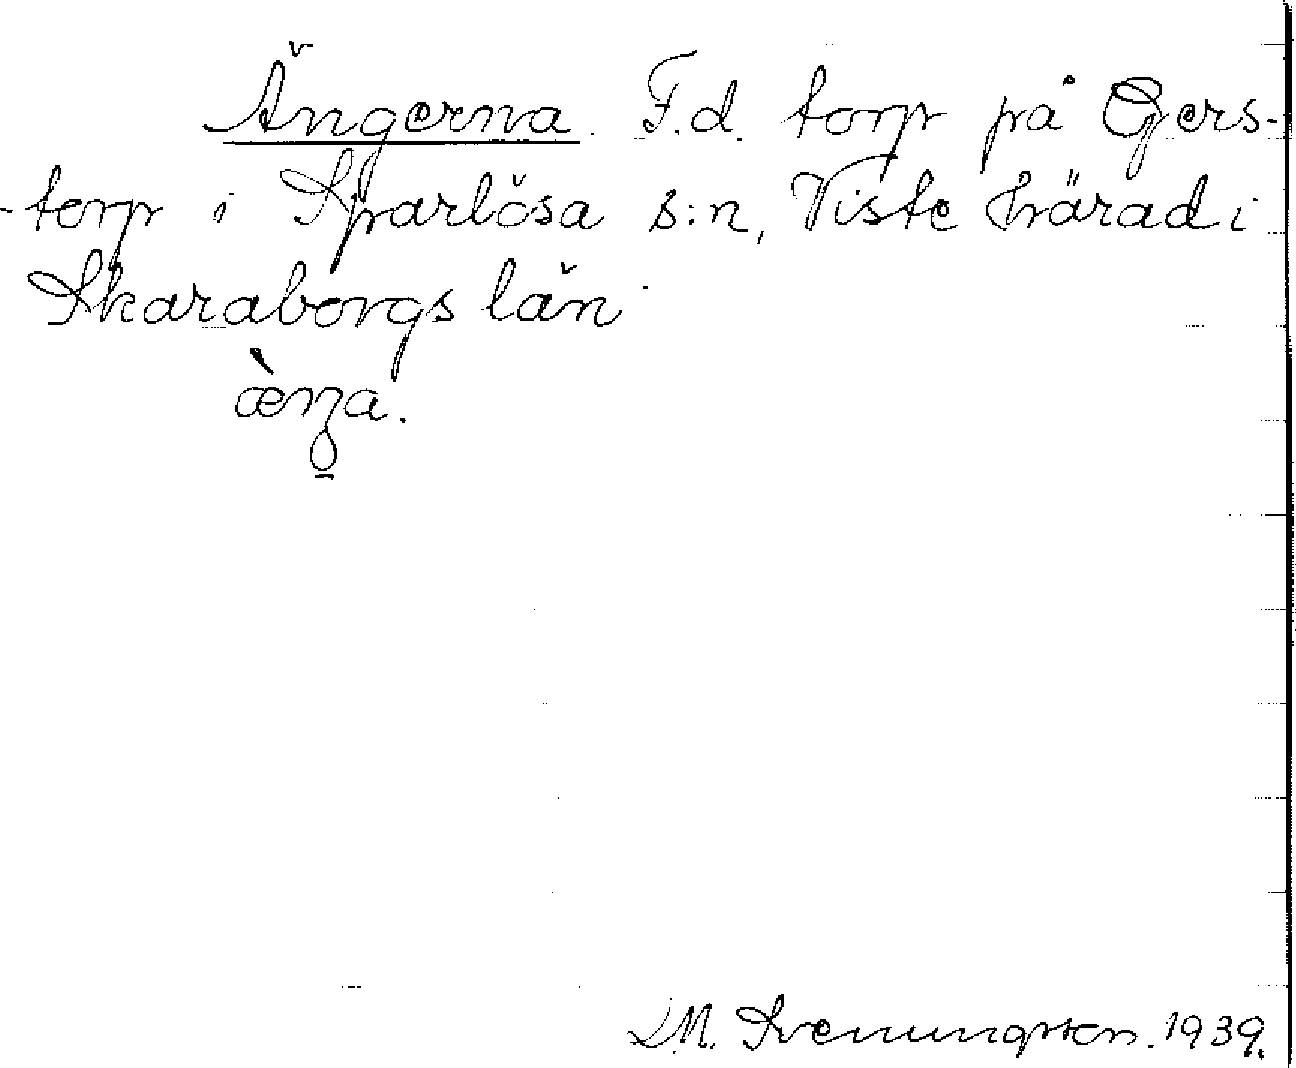 Ängerna. F.d. torp på Gers-
-torp i Sparlösa s:n, Viste härad i
Skaraborgs län.
D.M. Svenungsson. 1939.